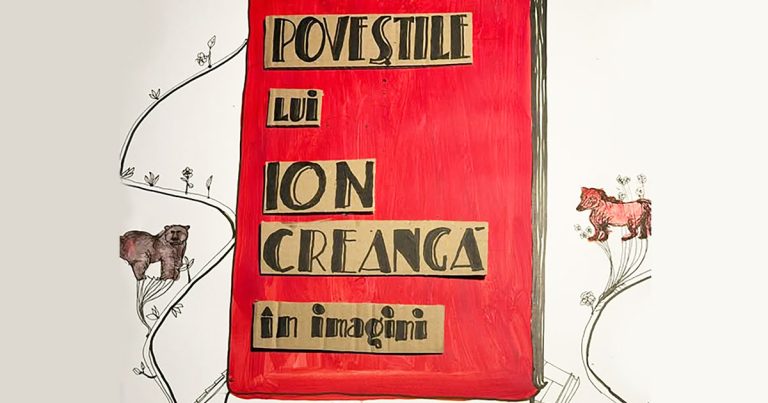 POVEȘTILE
LUI
ION
CREANGĂ
în imagini